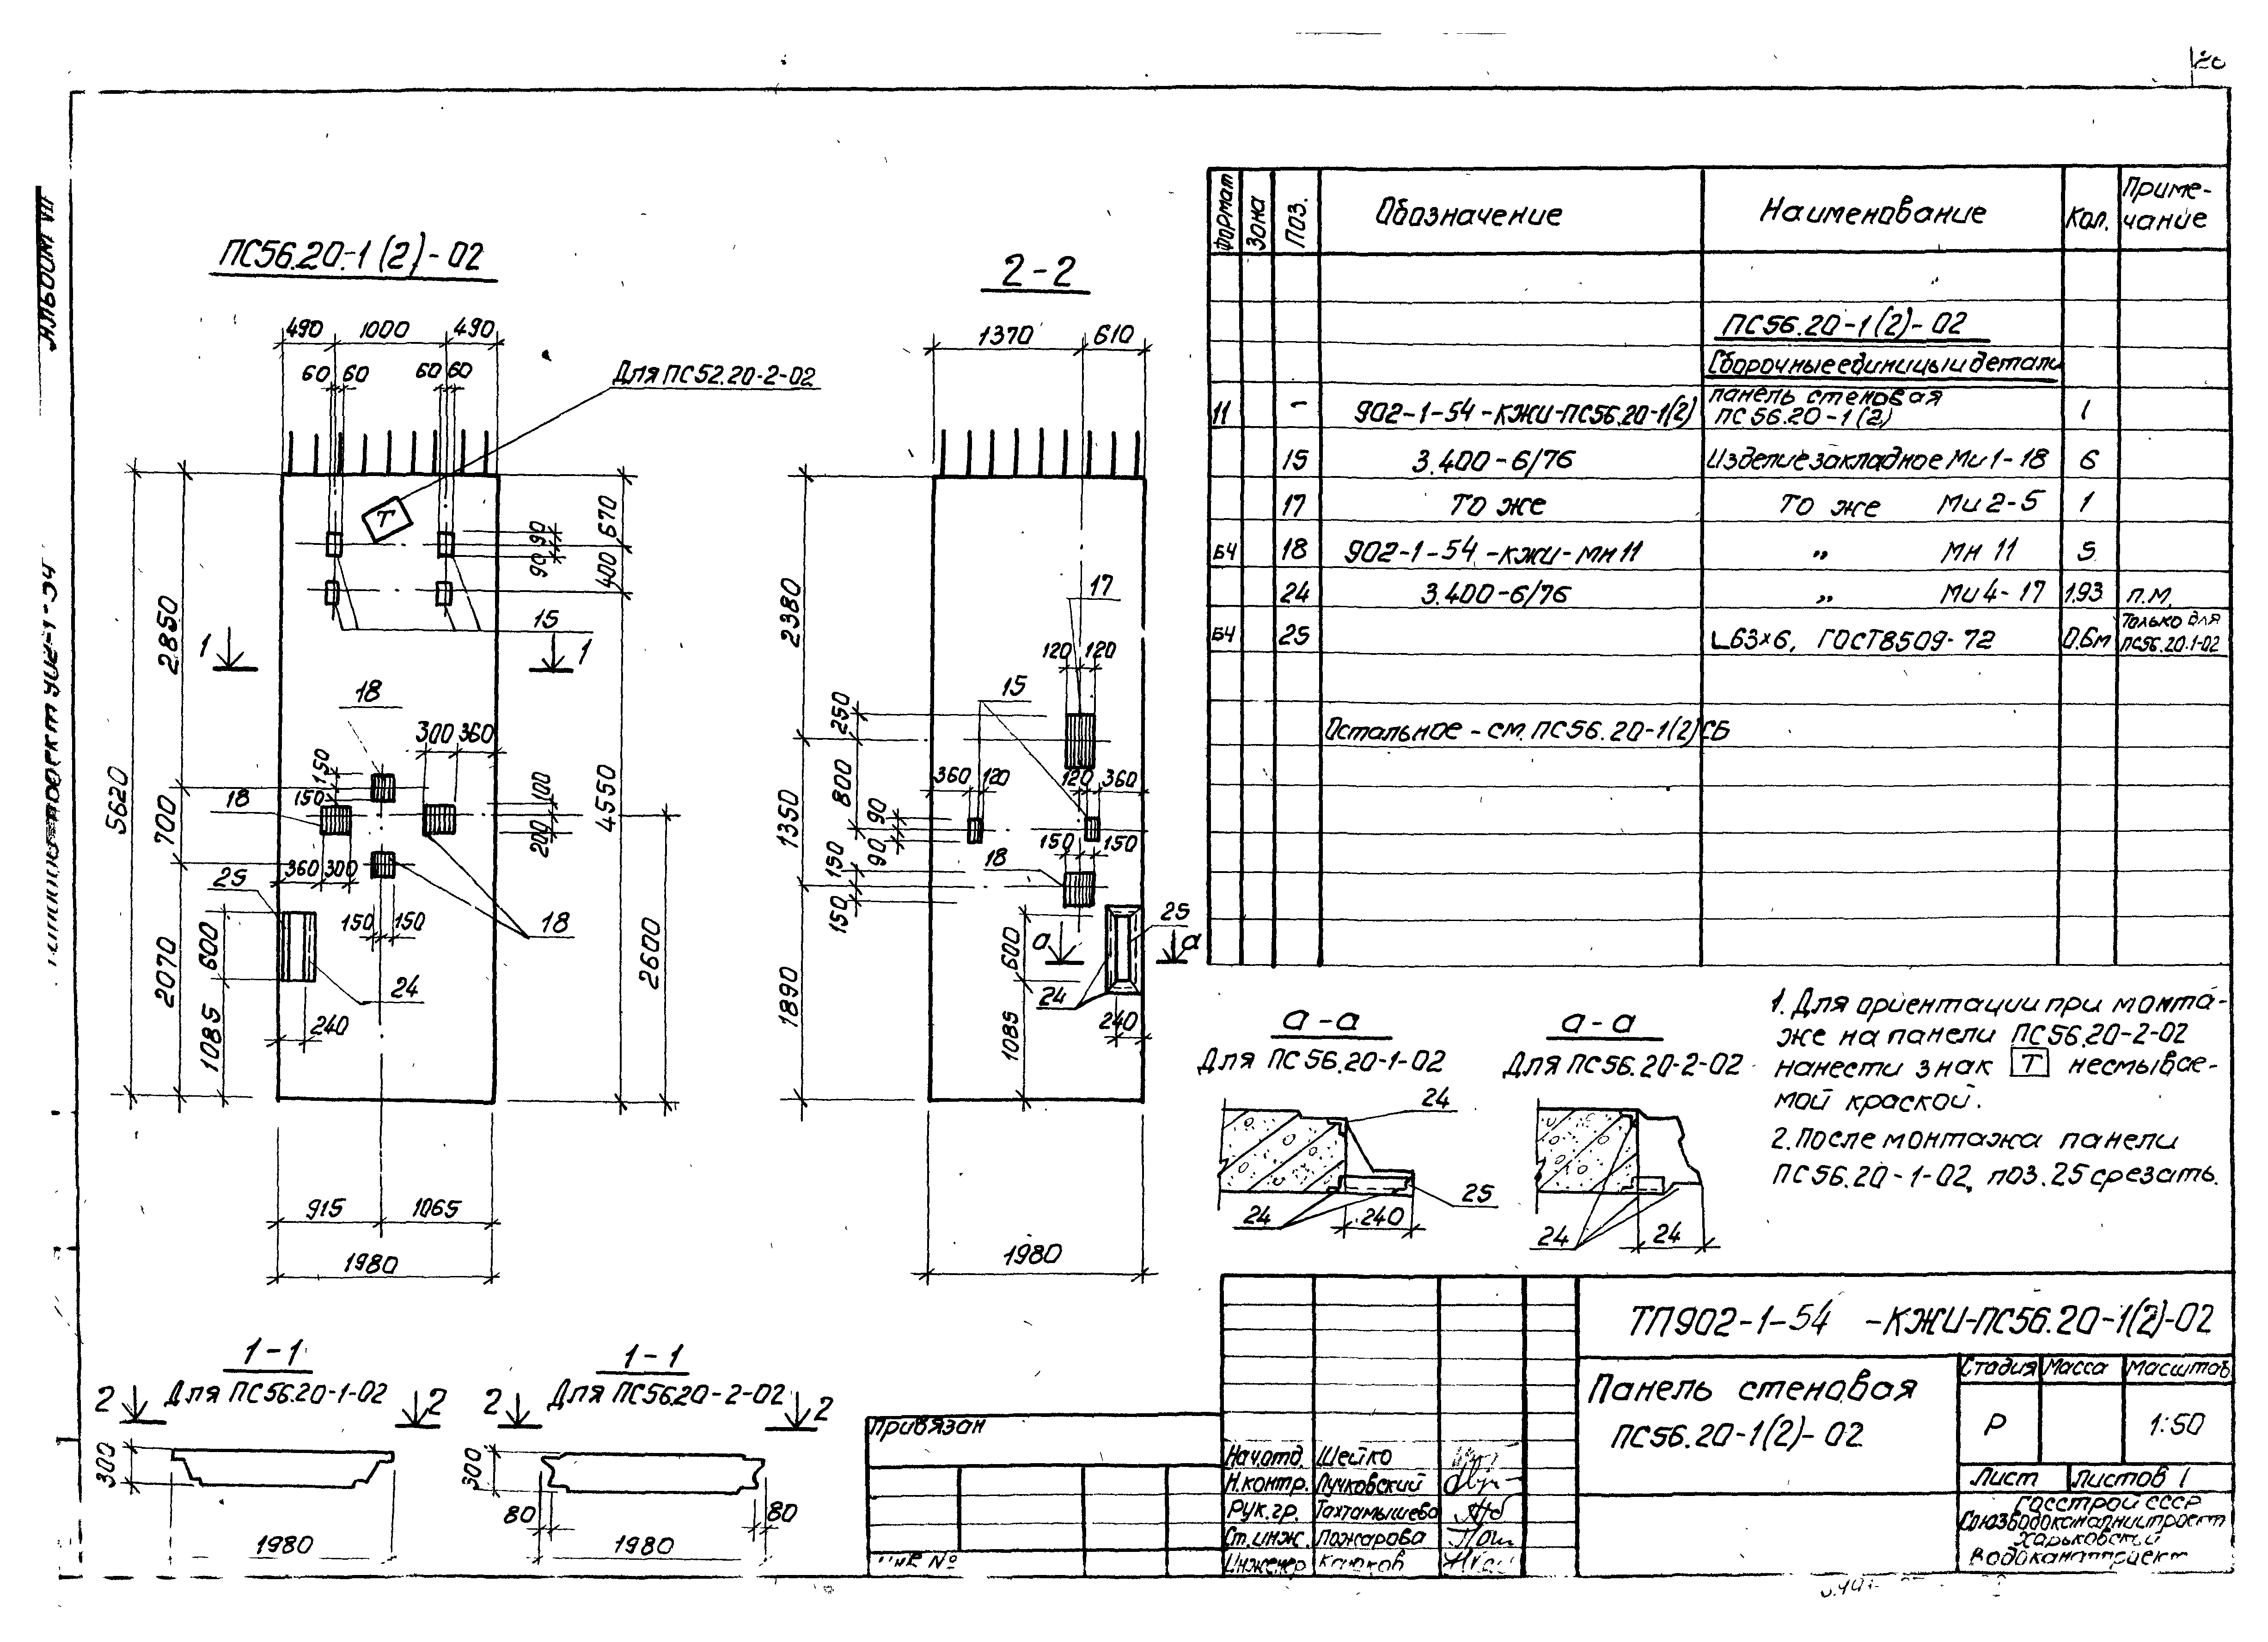 20
АЛЬБОМ VII
ПС56.20-1(2)-02
490 1000 490
60 60 60 60
Для ПС52.20-2-02
Т
90 90
670
400
15
1 1
18
300 360
150
150
18
100
200
360 300
25
150 150
18
24
240
5620
2850
700
2070
600
1085
4550
2600
915 1065
1980
2-2
1370 610
17
120 120
15
250
800
360 120 120 360
90
90
150 150
18
150
150
2380
1350
1890
25
а а
600
24
1085
240
1980
Формат Зона Поз. Обозначение Наименование Кол. Приме-
чание
ПС56.20-1(2)-02
Сборочные единицы и детали
11 - 902-1-54-КЖИ-ПС56.20-1(2) панель стеновая
ПС56.20-1(2) 1
15 3.400-6/76 Изделие закладное Ми1-18 6
17 То же То же Ми2-5 1
Б4 18 902-1-54-КЖИ-МН11 " МН 11 5
24 3.400-6/76 " Ми4-17 1.93 п.м.
Б4 25 ∟63×6, ГОСТ8509-72 0.6м Только для
ПС56.20.1-02
Остальное - см. ПС56.20-1(2)СБ
а-а
Для ПС56.20-1-02
24
25
24
240
а-а
Для ПС56.20-2-02
24
24
1. Для ориентации при монта-
же на панели ПС56.20-2-02
нанести знак Т несмывае-
мой краской.
2. После монтажа панели
ПС56.20-1-02, поз.25 срезать.
1-1
2 Для ПС56.20-1-02 2
300
1980
1-1
2 Для ПС56.20-2-02 2
300
80 80
1980
Привязан
Инв №
Нач.отд. Шейко
Н.контр. Пучковский
Рук.гр. Тахтамышева
Ст.инж. Пожарова
Инженер
ТП902-1-54 -КЖИ-ПС56.20-1(2)-02
Панель стеновая
ПС56.20-1(2)-02
Стадия Масса Масштаб
Р 1:50
Лист Листов 1
Госстрой СССР
Союзводоканалниипроект
Харьковский
Водоканалпроект